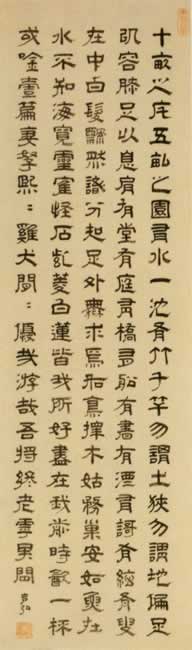 十畝之宅五畝之園有水一池有竹千竿勿謂土狹勿謂地偏足
以容膝足以息肩有堂有庭有橋有船有書有酒有歌有絃有叟
在中白髮飄然識分知足外無求焉如鳥擇木姑務巢安如龜在
水不知海寬靈隺怪石紫菱白蓮皆我所好盡在我前時飲一杯
或唫壹篇妻孥熙〻雞犬閒〻優哉游哉吾將終老虖其間